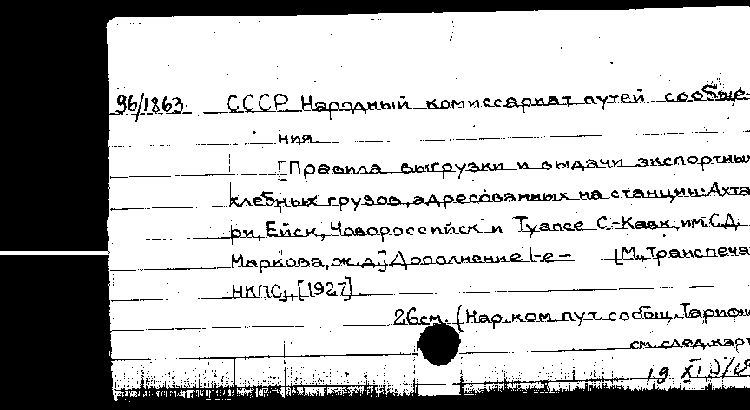 96/1863. СССР Народный комиссариат путей сообще-
ния.
[Правила выгрузки и выдачи экспортны
хлебных грузов, адресованных на станции: Ахта
ри, Ейск, Новороссийск и Туапсе С.-Кавк. им. С.Д.
Маркова, ж.д.] Дополнение 1-е - [М., Транспеча
НКПС], [1927]
26см. (Нар. ком. пут. сообщ. Тариф
см. след. кар
19